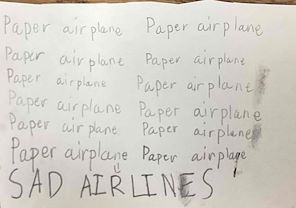 Paper airplane Paper airplane
Paper airplane Paper airplane
Paper airplane Paper airplane
Paper airplane Paper airplane
Paper airplane Paper airplane
Paper airplane Paper airplane
SAD AIRLINES